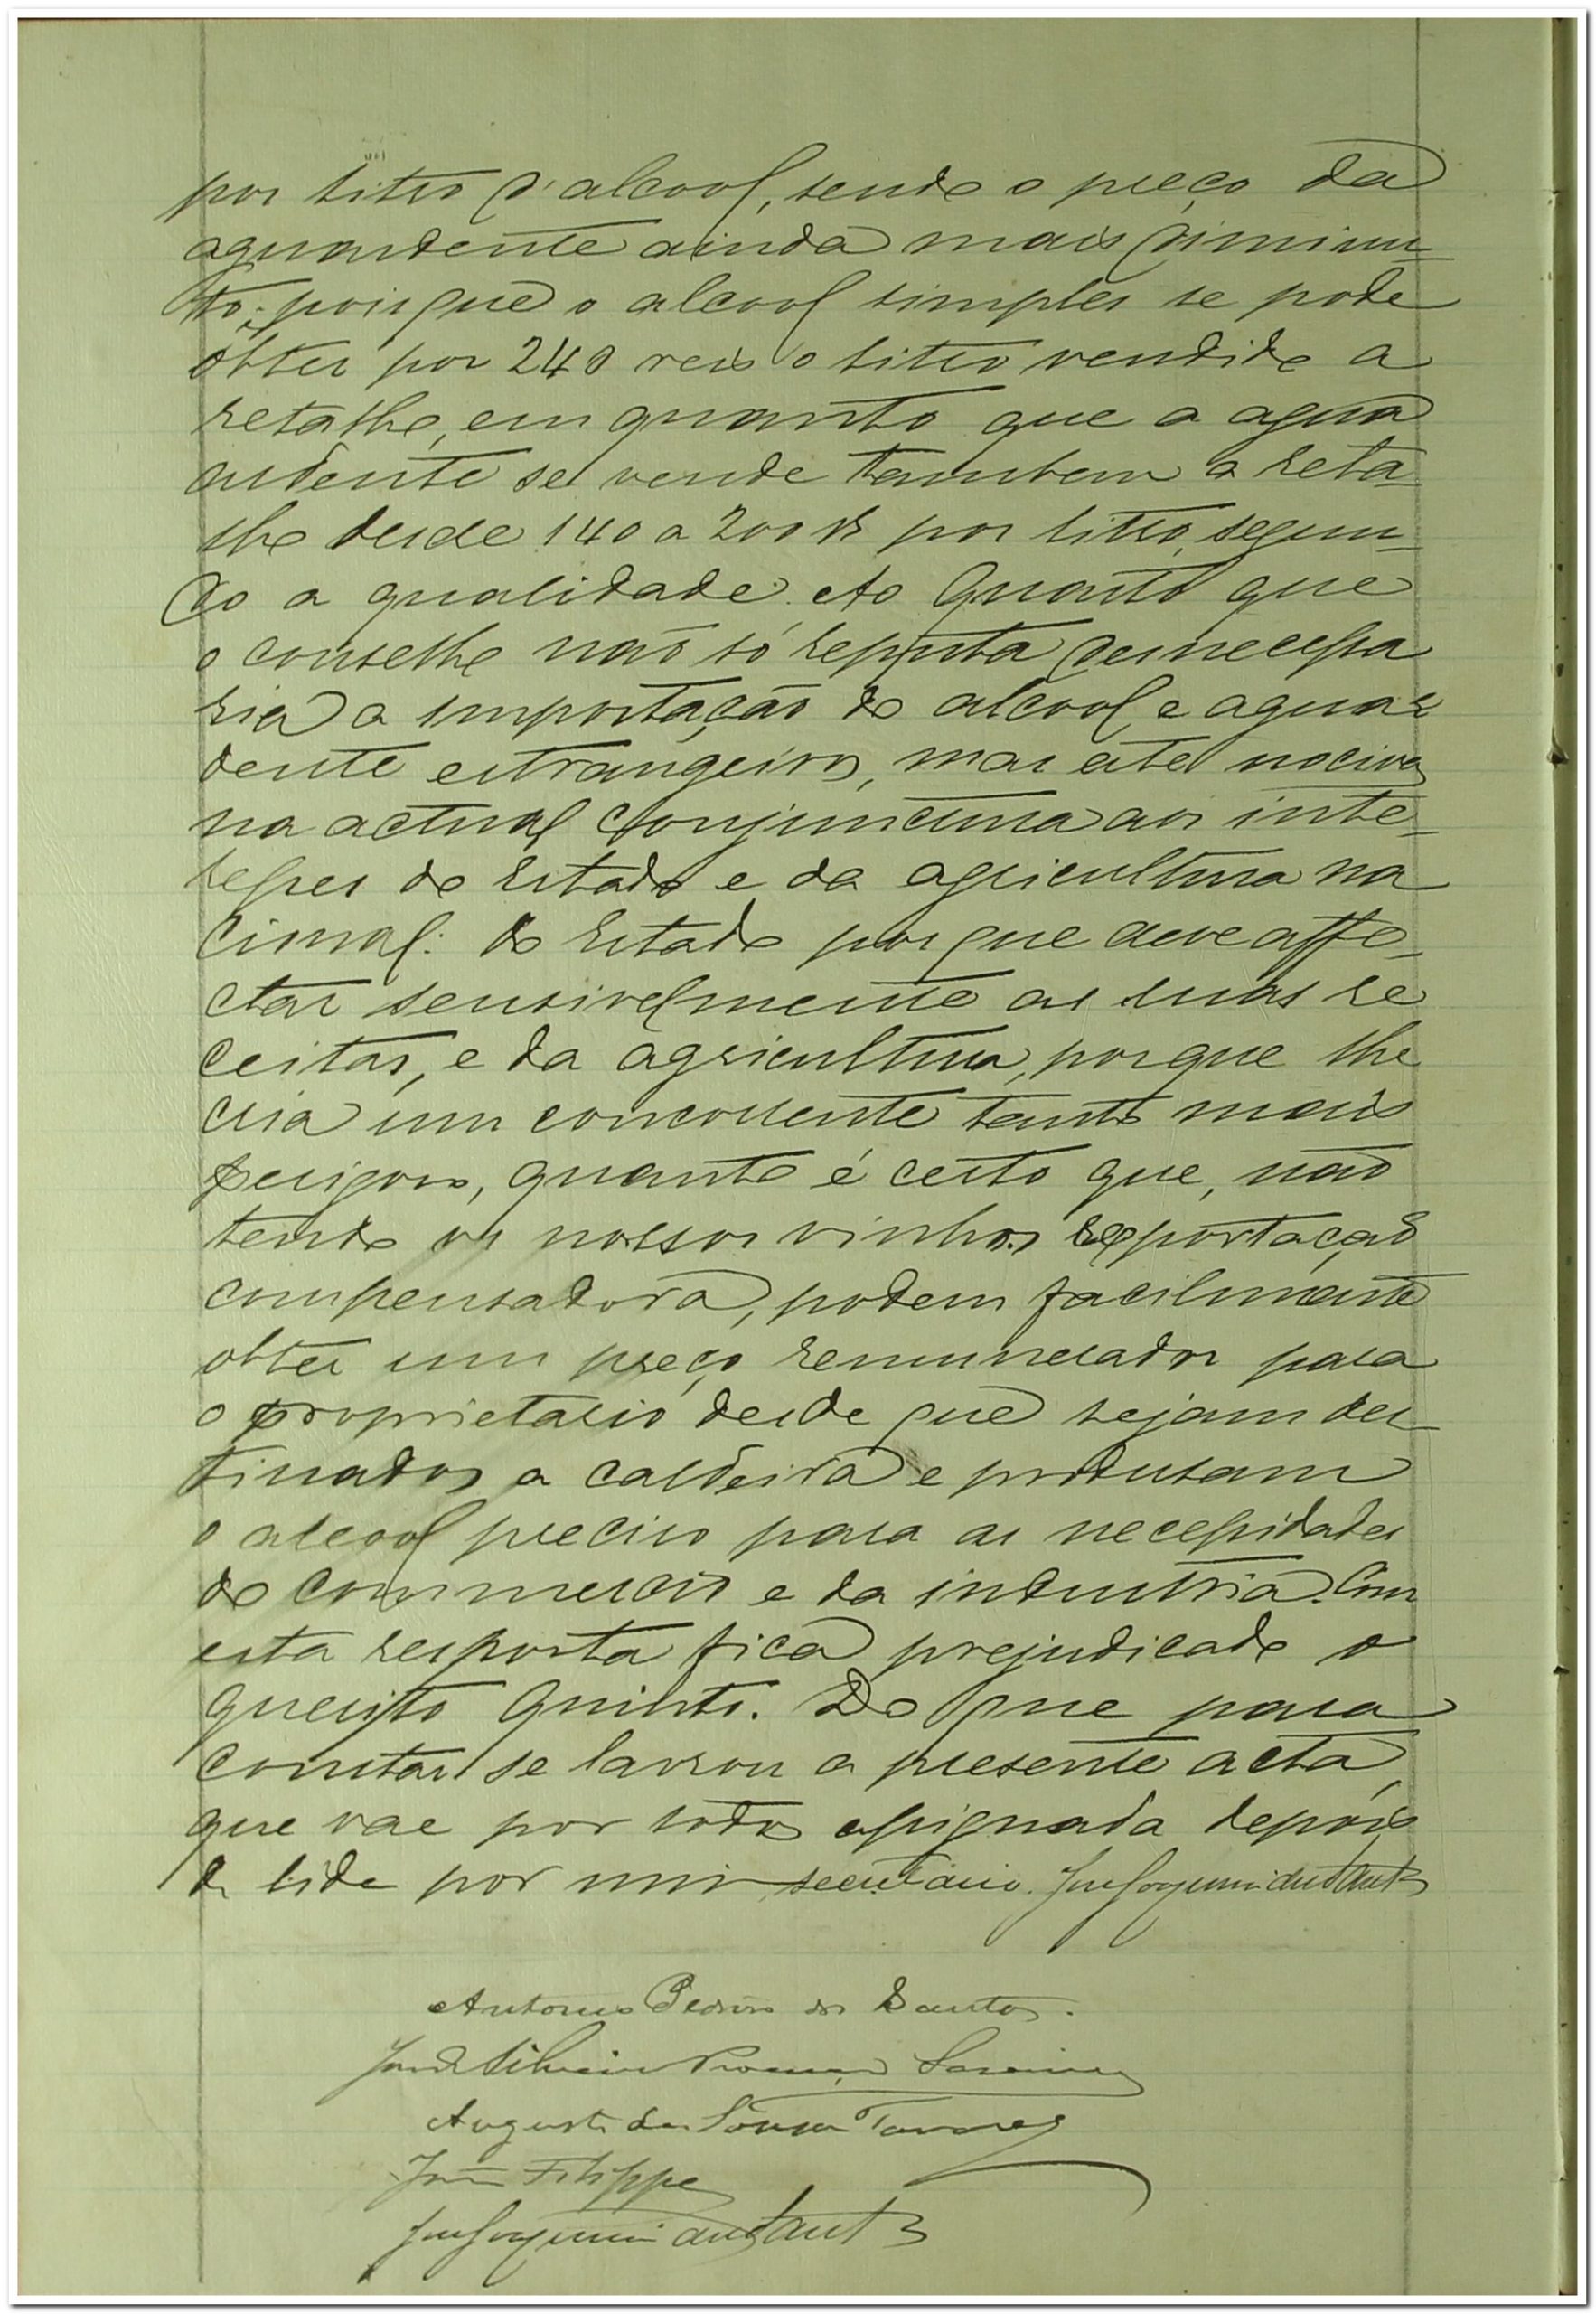 por litro d'alcool, sendo o preço da
aguardente ainda mais diminu-
to; porque o alcool simples se pode
obter por 240 reis o litro vendido a
retalho, emquanto que a agua
ardente se vende tambem a reta-
lho desde 140 a 200 rs por litro, segun-
do a qualidade. Ao Quarto que
o conselho não só reputa desnecessa
ria a importação do alcool e aguar
dente estrangeiros, mas até nociva
na actual conjunctura aos inte-
resses do Estado e da agricultura na
cional: do Estado porque deve affe-
ctar sensivelmente as suas re
ceitas, e da agricultura, porque lhe
cria um concorrente tanto mais
perigoso, quanto é certo que, não
tendo os nossos vinhos exportação
compensadora, podem facilmente
obter um preço remunerador para
o proprietario desde que sejam des-
tinados a caldeira e produsam
o alcool preciso para as necessidades
do commercio e da industria. Com
esta resposta fica prejudicado o
quesito Quinto. Do que para
constar se lavrou a presente acta,
que vae por todos assignada depois
de lida por mim secretario. José Joaquim dos Santos
Antonio Pedro dos Santos.
José Silverio Saraiva
Augusto de Sousa Tavares
João Filippe
José Joaquim dos Santos